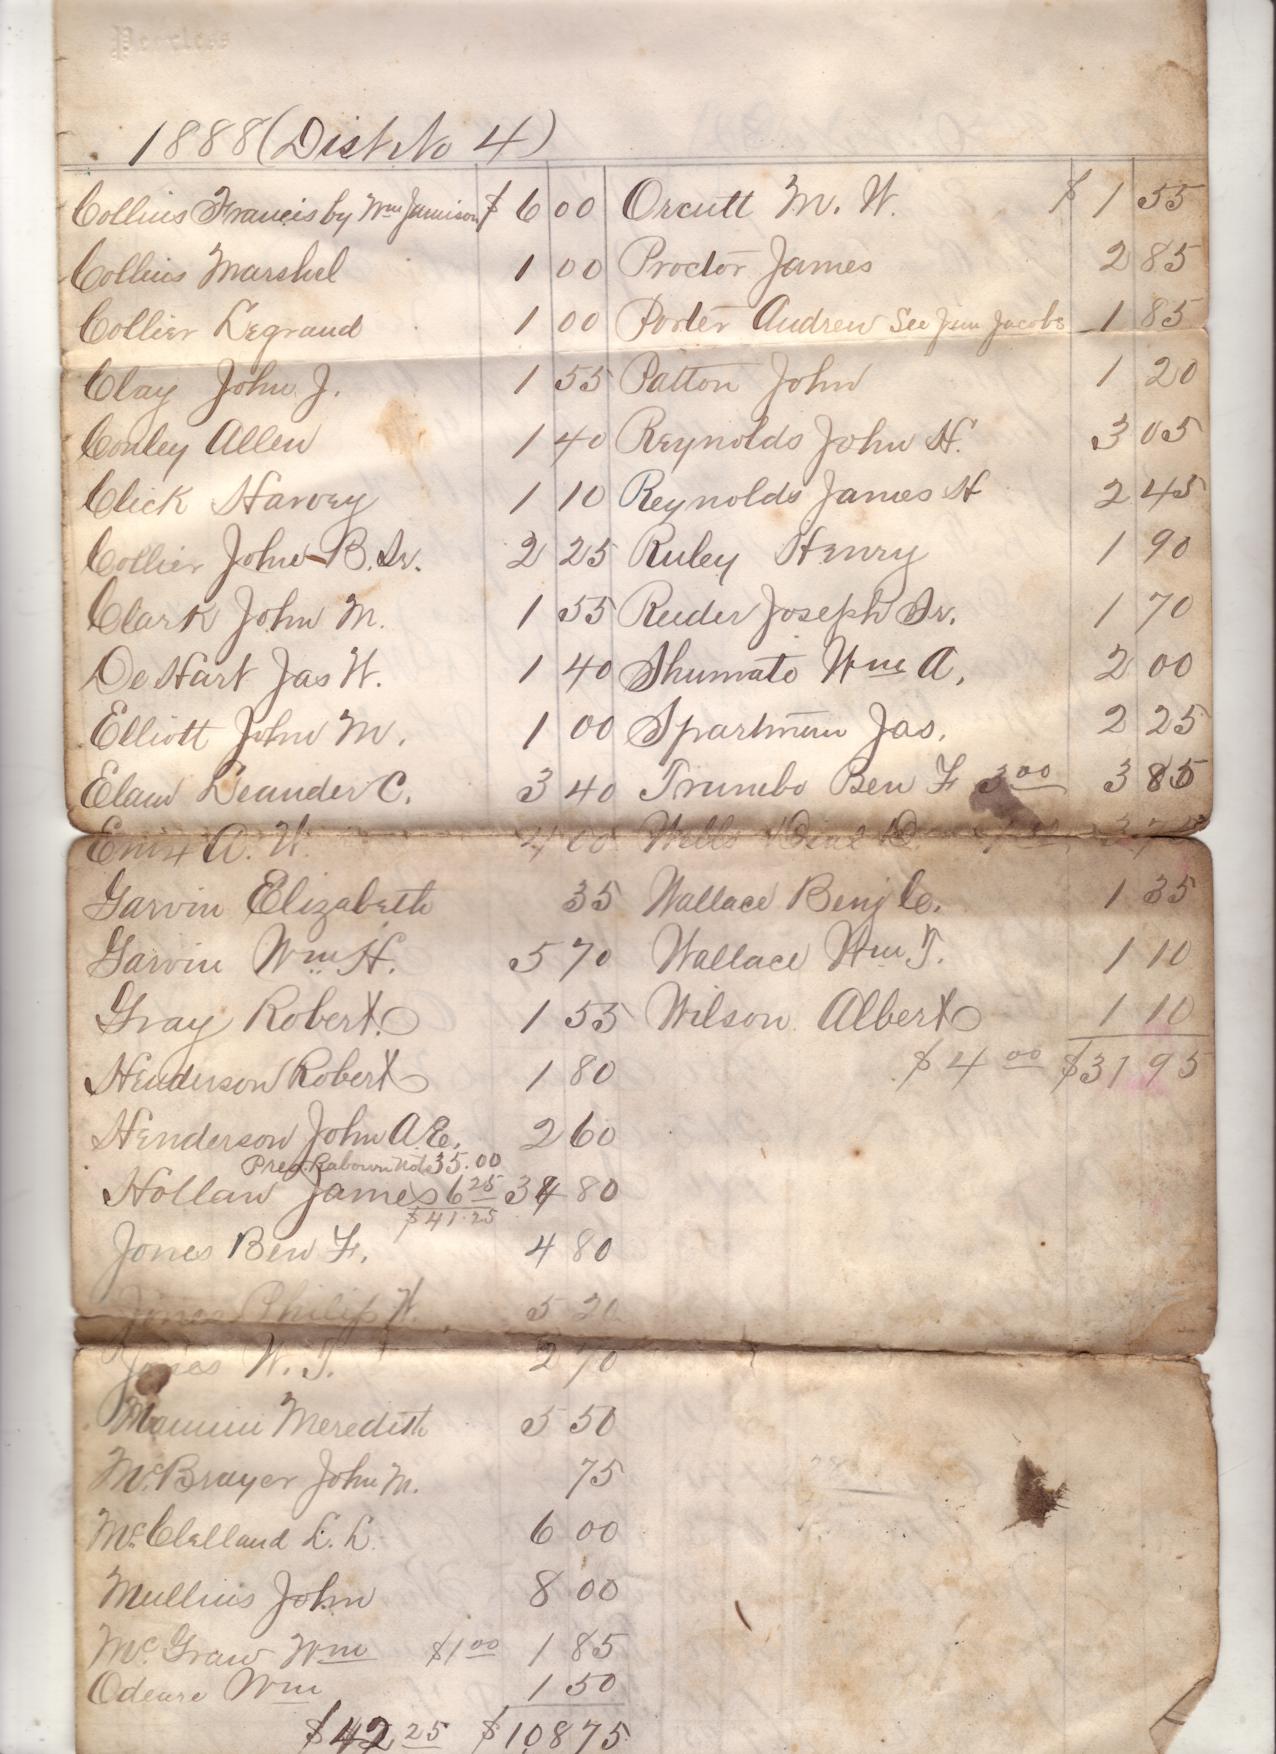 Peerless
1888 (Dist No 4)
Collins Francis by Wm Jamison $ 6 00
Collins Marshel 1 00
Collier Legrand 1 00
Clay John J. 1 55
Conley Allen 1 40
Click Harvey 1 10
Collier John B. Sr. 2 25
Clark John M. 1 55
DeHart Jas W. 1 40
Elliott John M. 1 00
Elam Leander C. 3 40
Enix A. W. 4 00
Garvin Elizabeth 35
Garvin Wm H. 5 70
Gray Robert 1 55
Henderson Robert 1 80
Henderson John A. E. 2 60
Note 35.00
Hollan James 6 25 80
$41.25
Jones Ben F. 4 80
Jones Philip W. 5 20
Jones W. T. 2 70
Mannin Meredith 5 50
McBrayer John M. 75
McClelland L. L. 6 00
Mullins John 8 00
McGraw Wm $1 00 1 85
Odeare Wm 1 50
$42 25 $108 75
Orcutt M. W. $ 1 55
Proctor James 2 85
Porter Andrew See Jim Jacobs 1 85
Patton John 1 20
Reynolds John H. 3 05
Reynolds James H 2 45
Ruley Henry 1 90
Reeder Joseph Sr. 1 70
Shumate Wm A. 2 00
Spartman Jas. 2 25
Trumbo Ben F 3 00 3 85
Wells
Wallace Benj C. 1 35
Wallace Wm T. 1 10
Wilson Albert 1 10
$4 00 $31 95